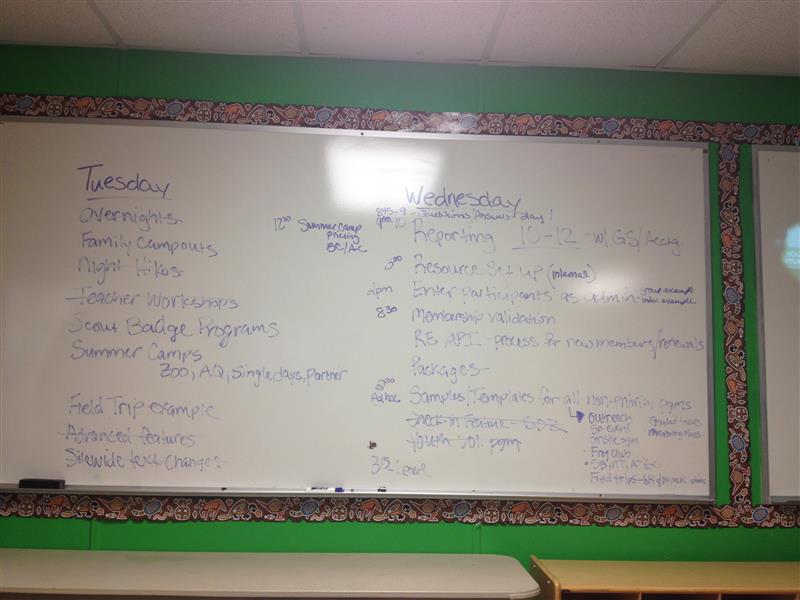 Tuesday
Overnights
Family Campouts
Night Hikes
Teacher Workshops
Scout Badge Programs
Summer Camps
ZOO, AQ, Single days, Partner
Field Trip example
Advanced Features
Sitewide text changes
12:30 Summer Camp
Pricing
BC/AC
Wednesday
845-9 - Questions, Answers - day 1
Reporting 10-12 - w/ GS/Acctg.
Resource Set up (internal)
2pm Enter participants as admin - group example
8:30 Membership validation
RE API - process for new members/renewals
Packages -
Ad hoc Samples/Templates for all non-priority pgms
Outreach
Guided tours
Onsite pgm
Frog Club
Check-in Feature -
Youth Vol. pgm
Field trips -
3:15 Leave